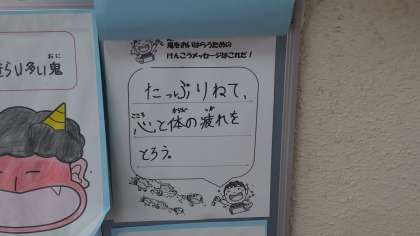 鬼をおいはらうための
けんこうメッセージはこれだ！
たっぷりねて、
心と体の疲れを
とろう。
こころ
からだ
つか
おに
い多い鬼